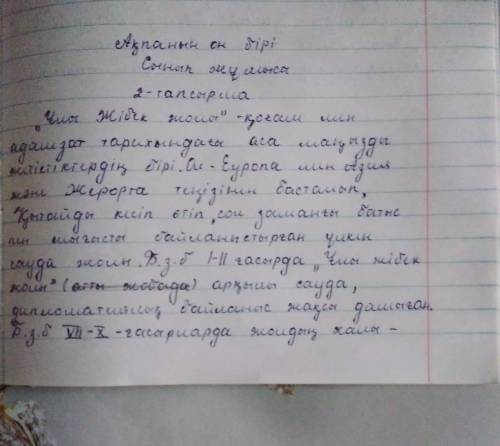 Ақпанын он бірі
Сынып жұмысы
2-тапсырма
„Ұлы Жібек жолы" - қоғам мен
адамзат тарихындағы аса маңызды
жетістіктердің бірі. Ол - Еуропа мен Азия
және Жерорта теңізінен басталып,
Қытайды кесіп өтіп, сол заманғы батыс
пен шығысты байланыстырған үлкен
сауда жолы. Б.з.б I-II ғасырда „Ұлы жібек
жолы" (атты жобада) арқылы сауда,
дипломатиялық байланыс жақсы дамыған.
Б.з.б VII-X - ғасырларда жолдың халы -